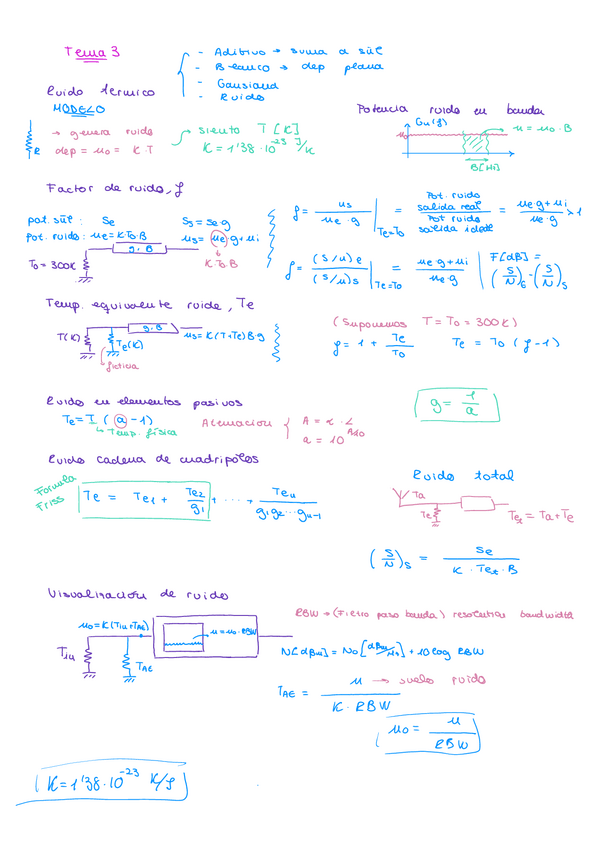 Tema 3
- Aditivo → suma a sñl
- Blanco → dep plana
- Gausiana
- Ruido
Ruido termico
MODELO
R → genera ruido
dep = n0 = K·T
siento T [K]
K = 1'38·10^-23 J/K
Potencia ruido en banda
Gn(f)
n0
n = n0·B
B[Hz]
Factor de ruido, f
pot. sñl : Se
Ss = Se·g
pot. ruido : ne = K·T0·B
ns = ne·g + ni
g·B
K·T0·B
T0 = 300K
f = ns / ne·g |Te=T0 = Pot. ruido salida real / Pot ruido salida ideal = ne·g + ni / ne·g > 1
f = (S/N)e / (S/N)s |Te=T0 = ne·g + ni / ne·g
F[dB] = (S/N)e - (S/N)s
Temp. equivalente ruido, Te
g·B
T(K)
Te(K)
ns = K(T+Te)B·g
fictiva
(Suponemos T = T0 = 300K)
f = 1 + Te/T0
Te = T0 (f-1)
Ruido en elementos pasivos
Te = T (a-1)
Temp. física
Atenuacion
A = α·L
a = 10^A/10
g = 1/a
Ruido cadena de cuadripolos
Formula Friss
Te = Te1 + Te2/g1 + ... + Ten/g1g2...gn-1
Ruido total
Ta
Te
Tet = Ta + Te
(S/N)s = Se / K·Tet·B
Visualizacion de ruido
n0 = K(Tin+TAE)
n = n0·RBW
Tin
TAE
RBW → (Filtro paso banda) resolution bandwidth
N[dBm] = N0[dBm/Hz] + 10log RBW
TAE = n / K·RBW
n → suelo ruido
n0 = n / RBW
K = 1'38·10^-23 K/J